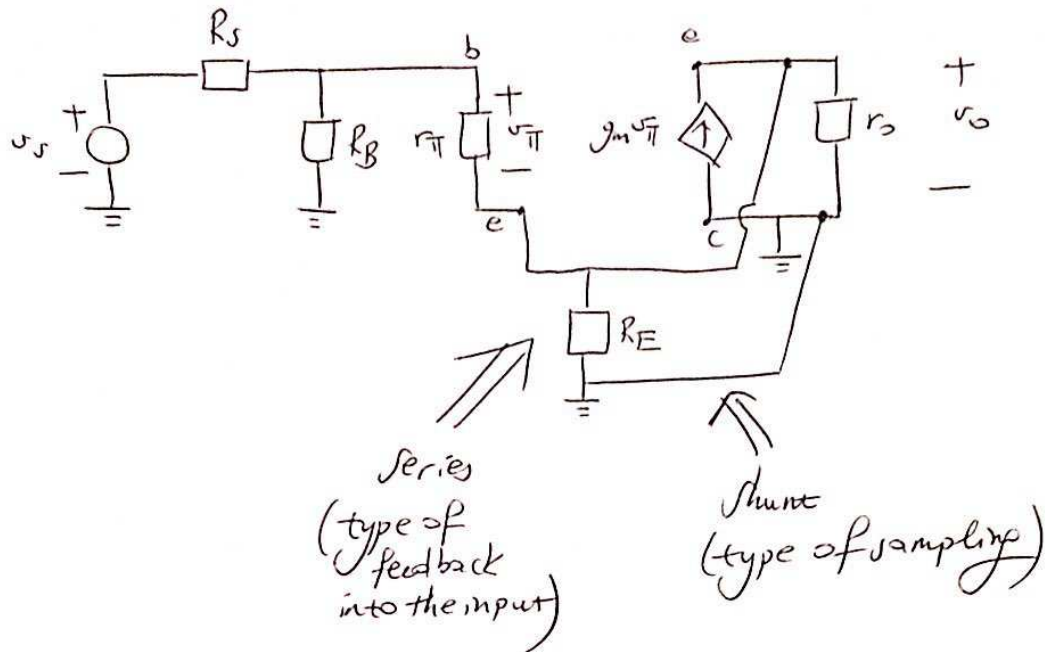 Rs
b
e
+
vs
−
RB
rπ
+
vπ
−
gmvπ
ro
+
vo
−
e
c
RE
Series
(type of
feedback
into the input)
shunt
(type of sampling)